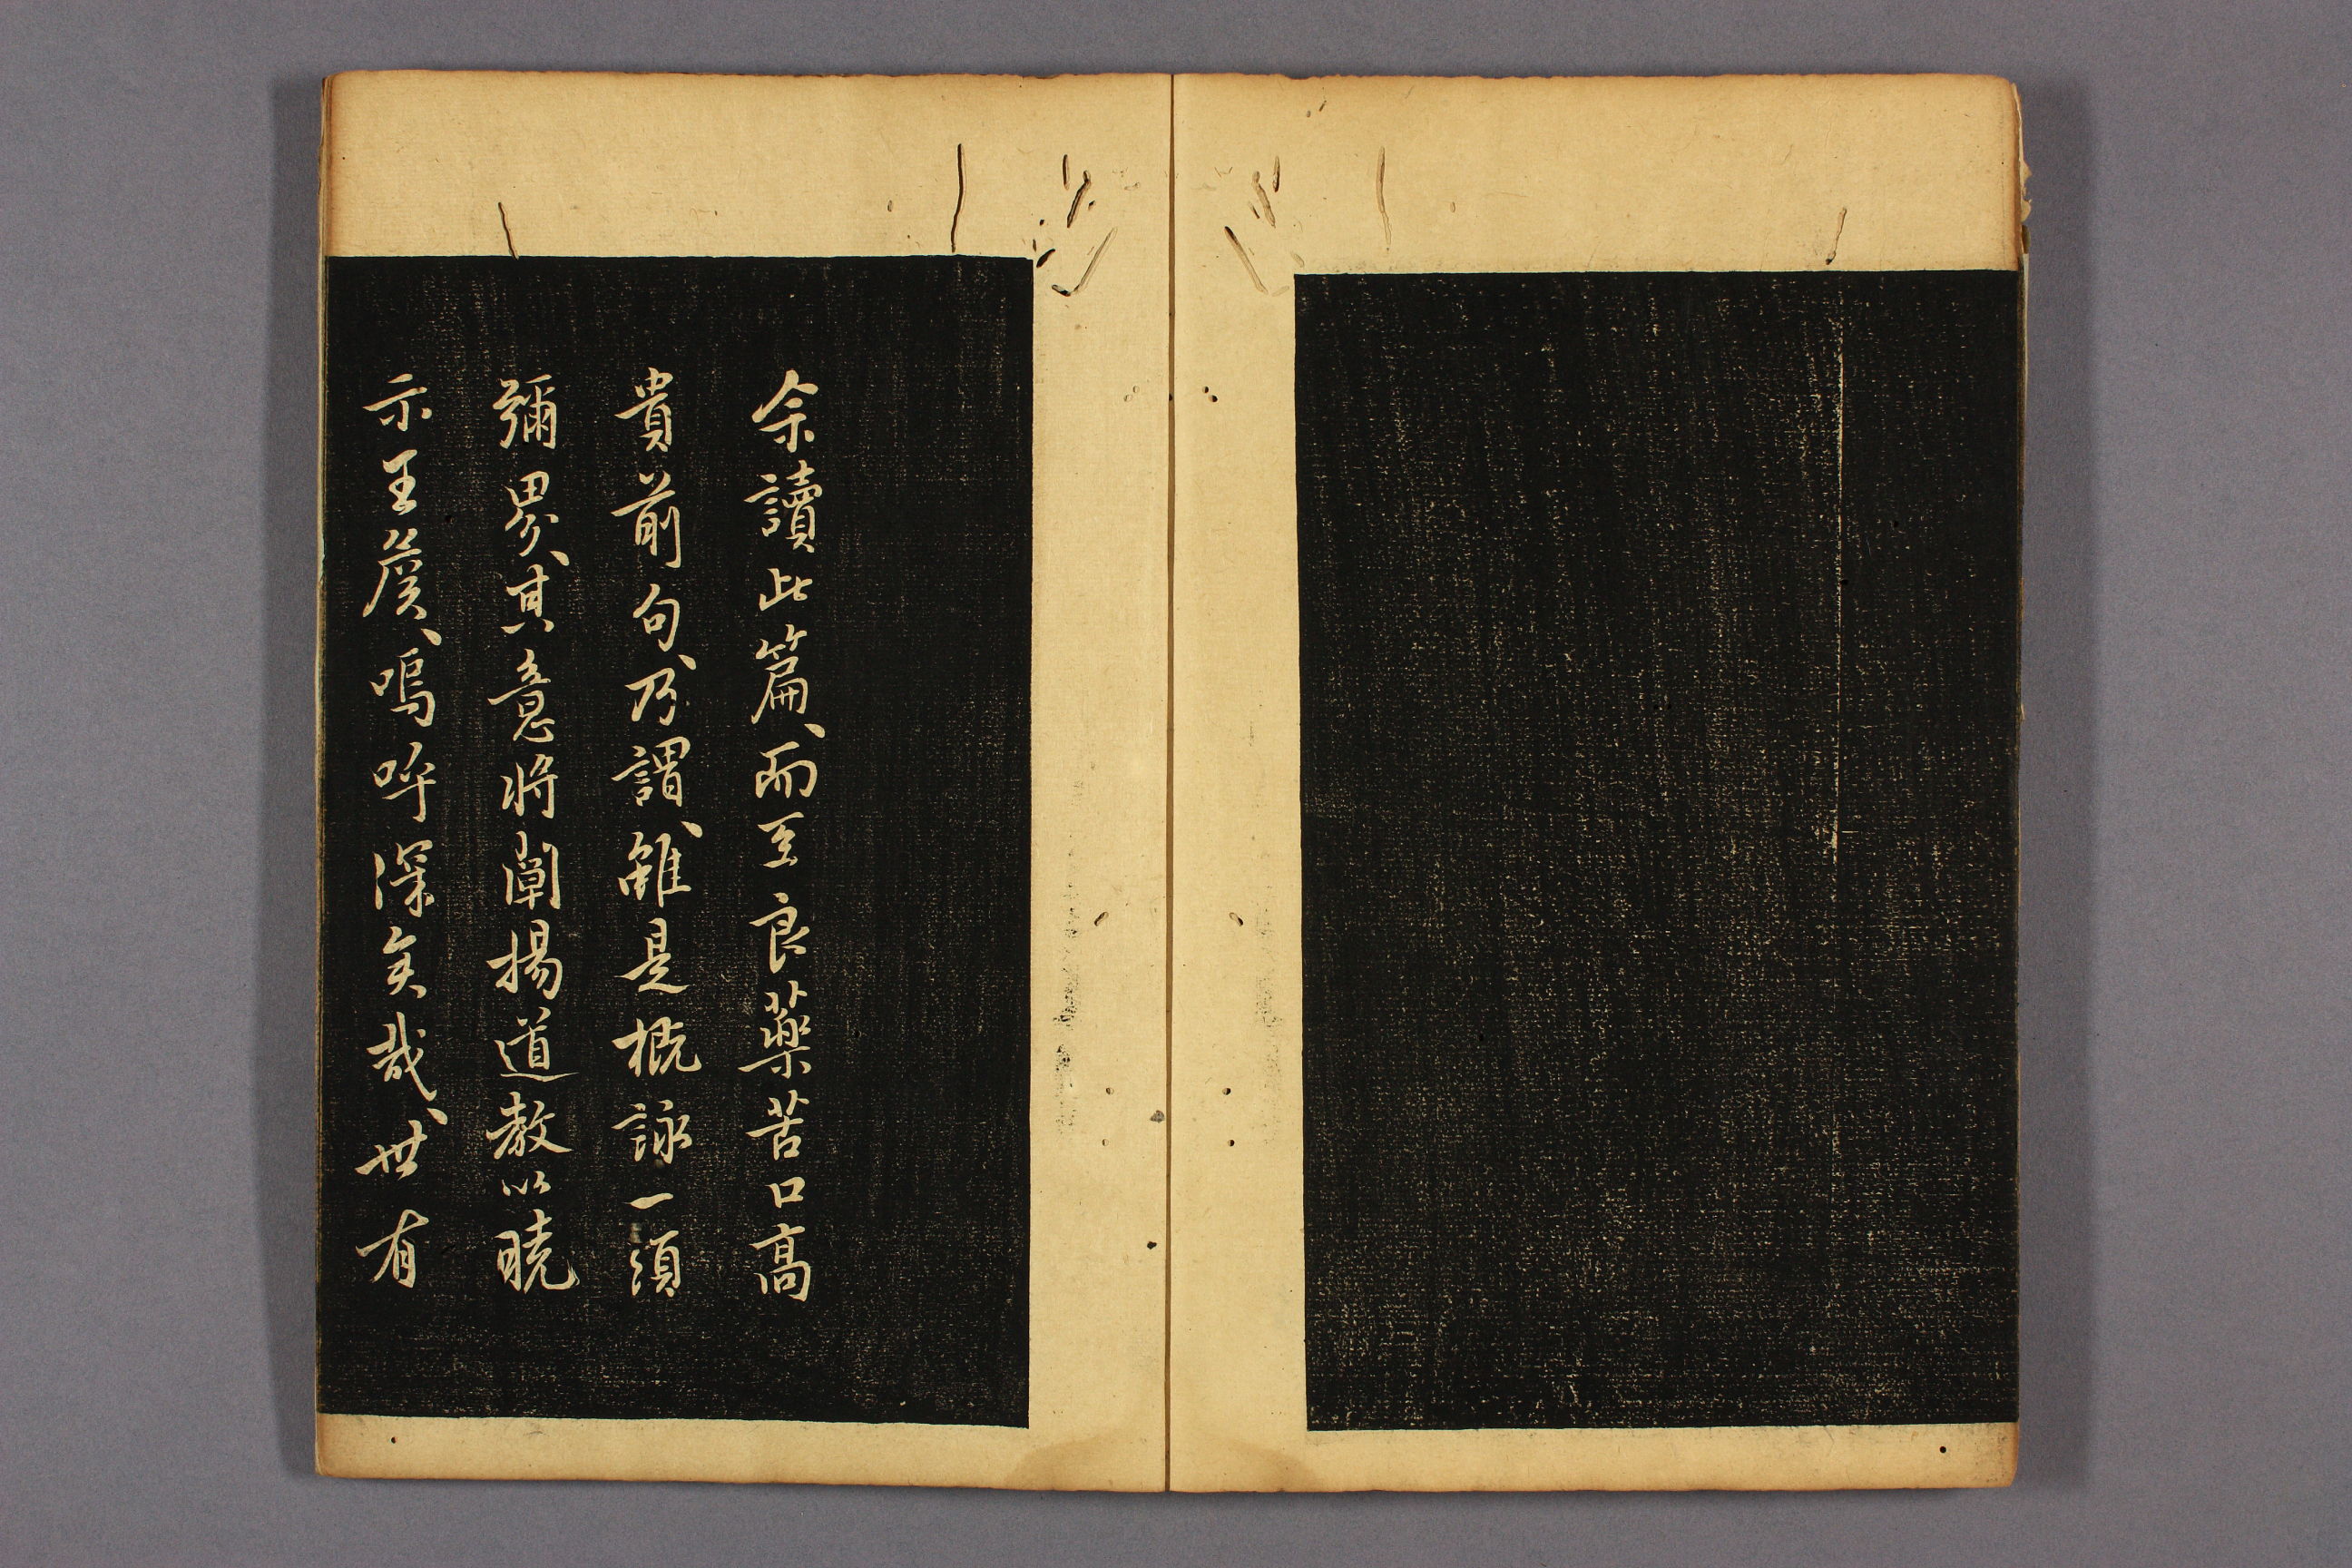 余讀此篇、而至良藥苦口高
貴前句、乃謂、雖是概詠一須
彌界、其意將闡揚道教以曉
示王矦、嗚呼深矣哉、世有